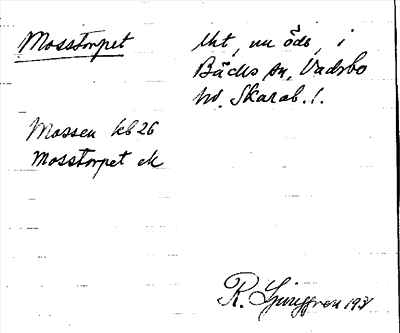 Mosstorpet
lht, nu öde, i
Bäcks sn, Vadsbo
hd. Skarab. l.
Mossen kb 26
Mosstorpet ek
R. Ljunggren 193